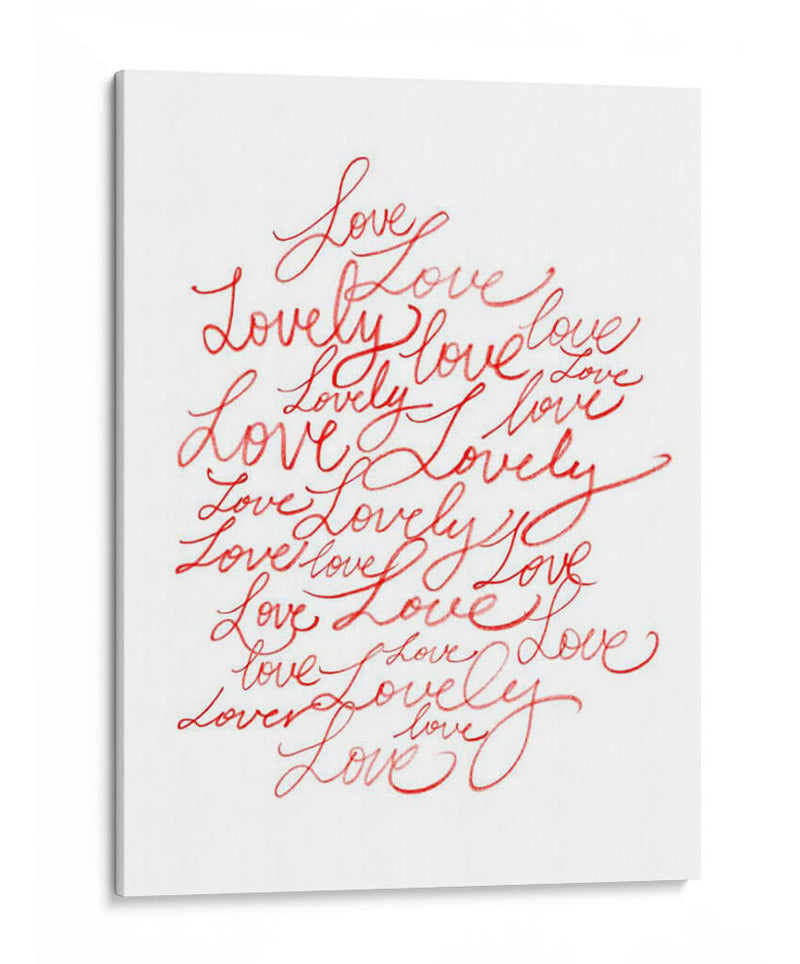 Love
Love
Lovely love love
Love
Lovely love
Love Lovely
Love Lovely
Love love Love
Love Love Love
love Love
Lovely
Lover love
Love